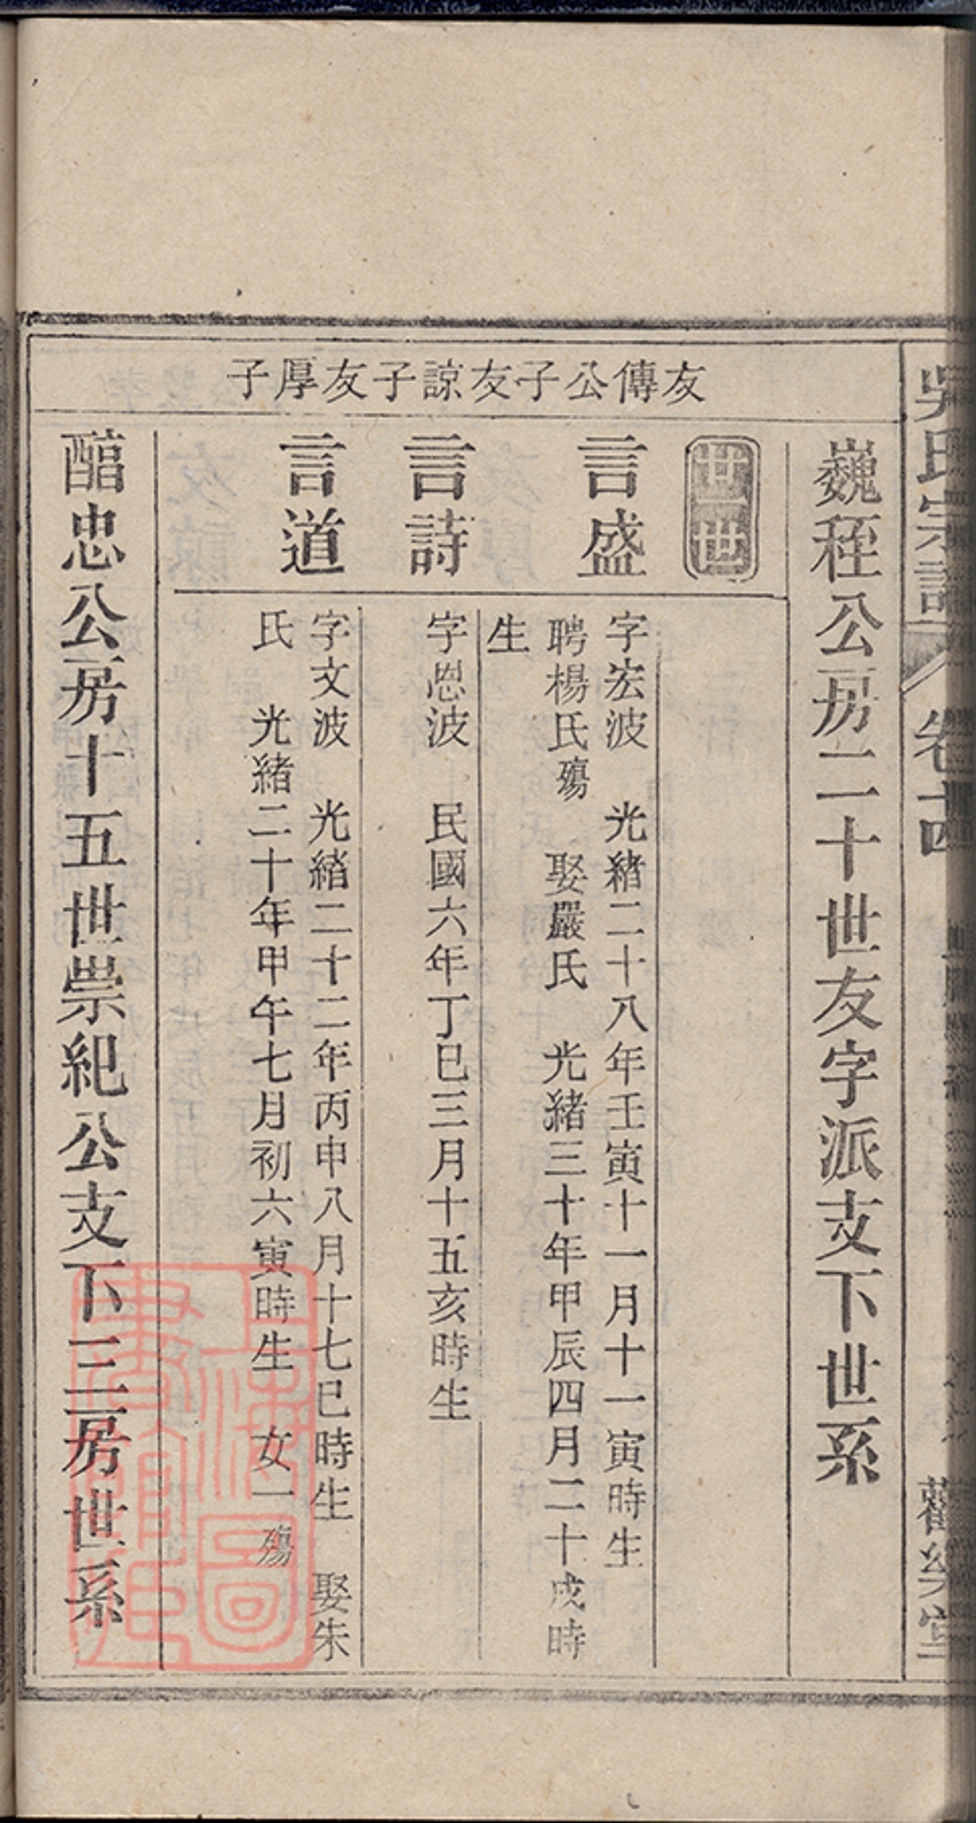 吳氏宗譜 卷十四
巍秷公房二十世友字派支下世系
友傳公子友諒子友厚子
廿一世
言盛
字宏波 光緒二十八年壬寅十一月十一寅時生
聘楊氏殤 娶嚴氏 光緒三十年甲辰四月二十戌時
生
言詩
字恩波 民國六年丁巳三月十五亥時生
言道
字文波 光緒二十二年丙申八月十七巳時生 娶朱
氏 光緒二十年甲午七月初六寅時生 女一殤
醕忠公房十五世崇紀公支下三房世系
上海圖書館藏